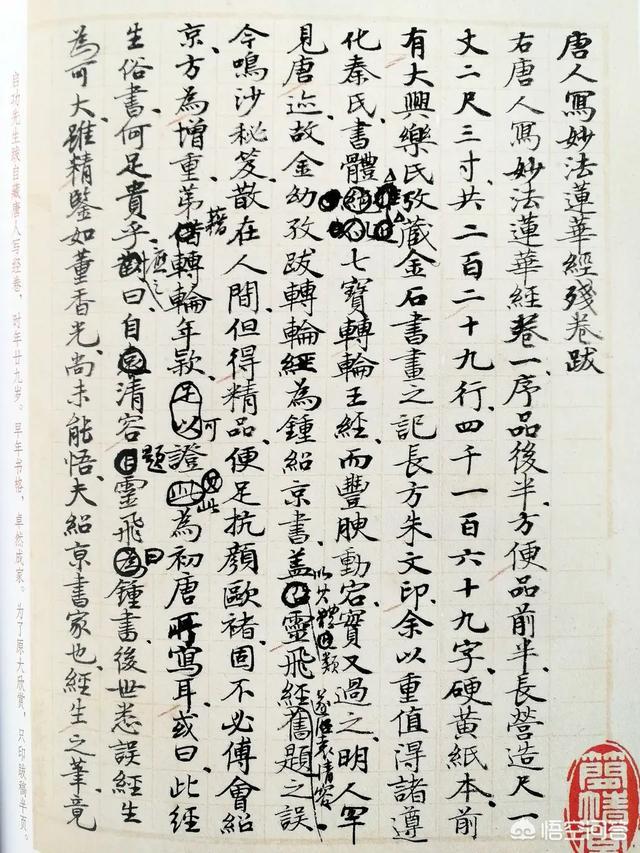 唐人寫妙法蓮華經殘卷跋
右唐人寫妙法蓮華經卷一序品後半方便品前半長營造尺一
丈二尺三寸共二百二十九行四千一百六十九字硬黃紙本前
有大興樂氏攷藏金石書畫之記長方朱文印余以重值得諸遵
化秦氏書體 七寶轉輪王經而豐腴動宕實又過之明人罕
見唐迹故金幼孜跋轉輪經為鍾紹京書蓋 靈飛經舊題之誤
以其體 類 遂 袁清容
今鳴沙秘笈散在人間但得精品便足抗顏歐褚固不必傅會紹
京方為增重弟借轉輪年款足以證 為初唐所寫耳或曰此經
藉
可
又此
生俗書何足貴乎 曰自 清容 靈飛 鍾書後世悉誤經生
應之
題
曰
為可大雖精鑒如董香光尚未能悟夫紹京書家也經生之筆竟
启功先生跋自藏唐人写经卷，时年廿九岁。早年书格，卓然成家。为了原大欣赏，只印跋稿半页。
簡靖
悟空问答